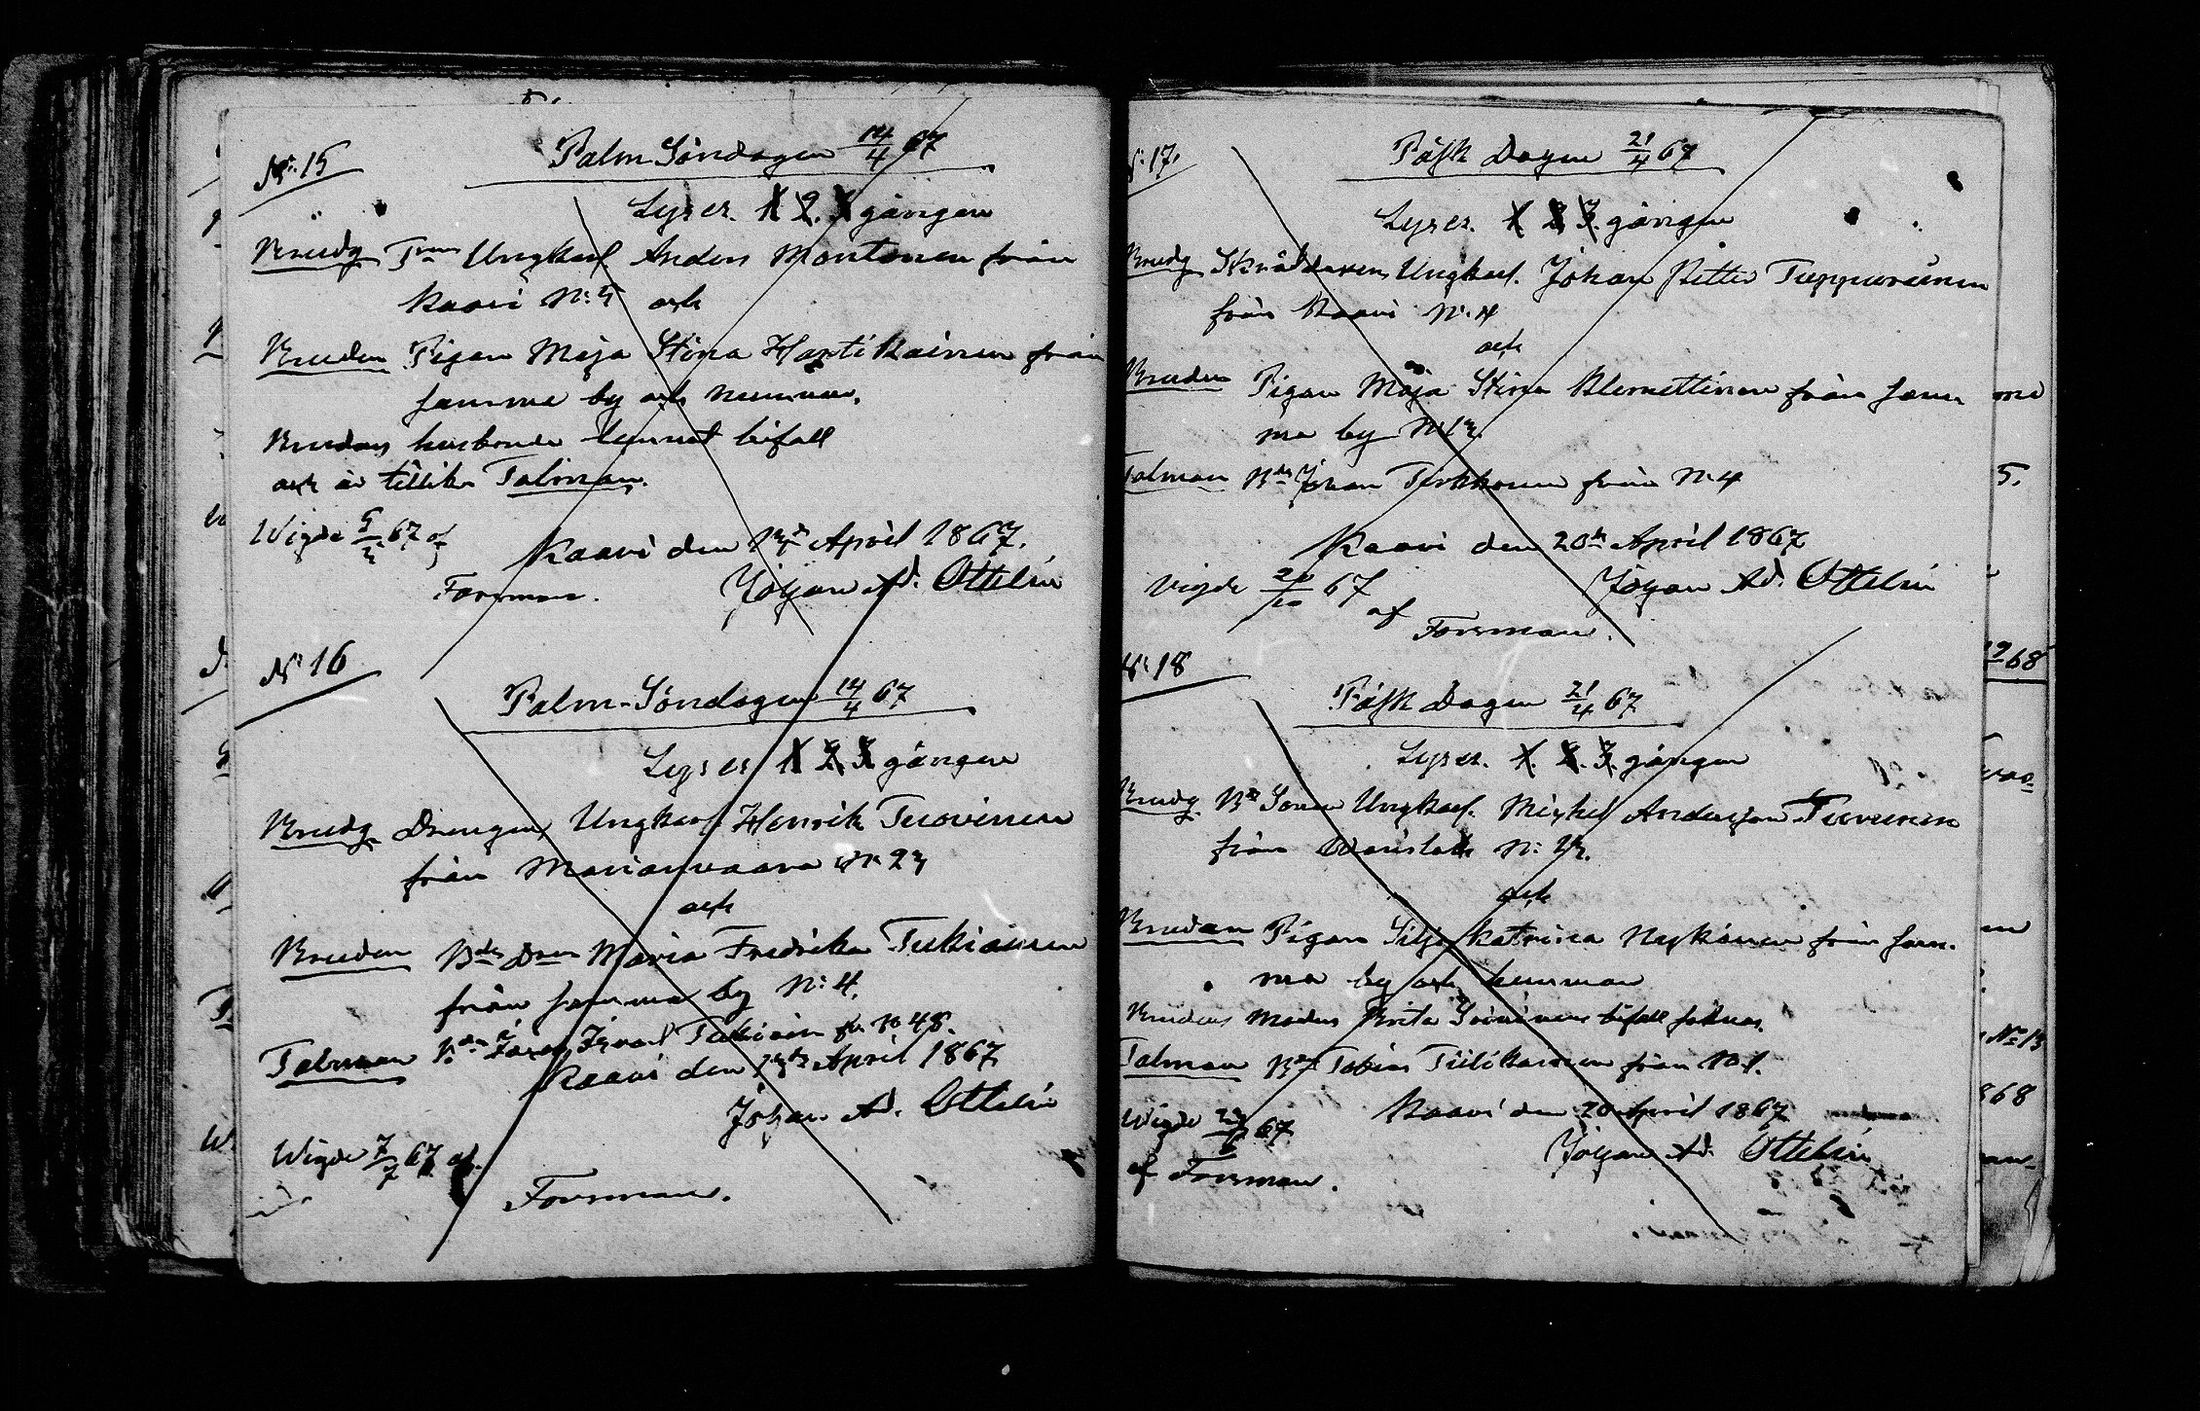 N: 15
Palm Söndagen 14/4 67
Lyses. 1 2. 3 gången
Brudg. Ungkarl Anders Montonen från
Kaavi N: 5 och
Bruden Pigan Maja Stina Hartikainen från
samma by och nummer.
Brudens husbonde lemnat bifall
och är tillika Talman.
Wigde 67 af
Forsman.
Kaavi den April 1867.
Johan Ad. Ottelin
N: 16
Palm-Söndagen 14/4 67
Lyses 1 2 3 gången
Brudg Drengen Ungkarl Henrik Tuovinen
från Marianvaara N: 23
och
Bruden Bde Dren Maria Fredrika Tukiainen
från samma by N: 4.
Talman
Kaavi den April 1867
Johan Ad. Ottelin
Wigde 7/7 67 af
Forsman.
N: 17.
Påsk Dagen 21/4 67
Lyses. 1 2 3. gången
Brudg Skräddaren Ungkarl. Johan Petter Tuppurainen
från Kaavi N: 4
och
Bruden Pigan Maja Stina Klemettinen från sam
ma by
Talman Bdn Johan Pirhonen från N: 4
Kaavi den 20de April 1867
Johan Ad. Ottelin
Vigde 67
af
Forsman.
N: 18
Påsk Dagen 21/4 67
Lyses. 1. 2. 3. gången
Brudg. Bde Sonen Ungkarl. Mickel Andersson Turunen
från
och
Bruden Pigan Silja Katrina Nykänen från sam-
ma by och numman
Brudens Moders Brita bifall
Talman Bdn Tobias Tiilikainen från N: 1.
Kaavi den 20 April 1867
Johan Ad. Ottelin
Wigde 67
af Forsman.